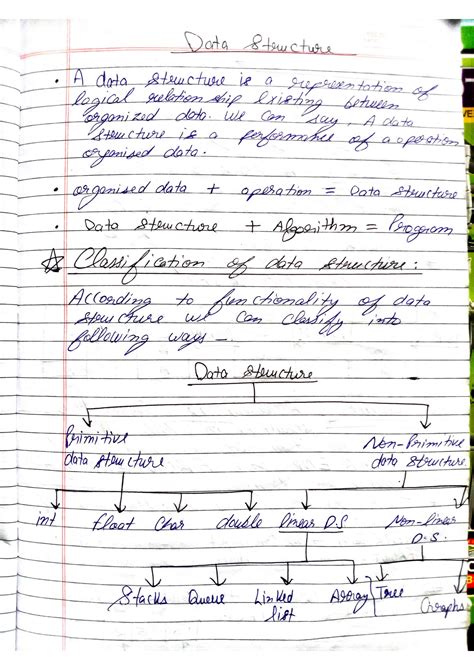 Data Structure
. A data structure is a representation of
logical relationship existing between
organized data. we can say, A data
structure is a performance of a operation
organised data.
. organised data + operation = Data Structure
. Data structure + Algorithm = Program
☆ Classification of data structure :
According to functionality of data
structure we can classify into
following ways –
Data structure
Primitive Non-Primitive
data structure data structure
int float Char double linear D.S Non-linear
D.S.
Stacks Queue Linked Array Tree Graphs
list